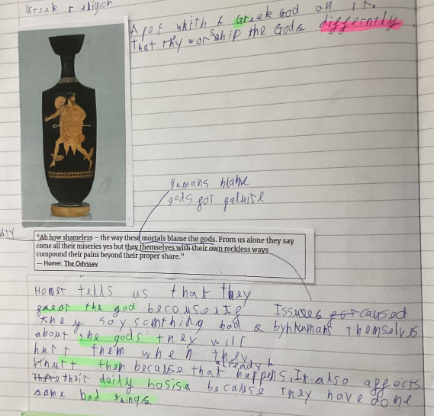 Greek religion
A pot which a Greek God on it.
that they worship the Gods differently
Humans blame
gods for failure
"Ah how shameless – the way these mortals blame the gods. From us alone they say
come all their miseries yes but they themselves with their own reckless ways
compound their pains beyond their proper share."
– Homer, The Odyssey
Homer tells us that they
the god because if
they say somthing bad
about the gods they will
hurt them when they
them because that happens, It also affects
their daily basise because they have done
some bad things
Issuses caused
by humans themselves